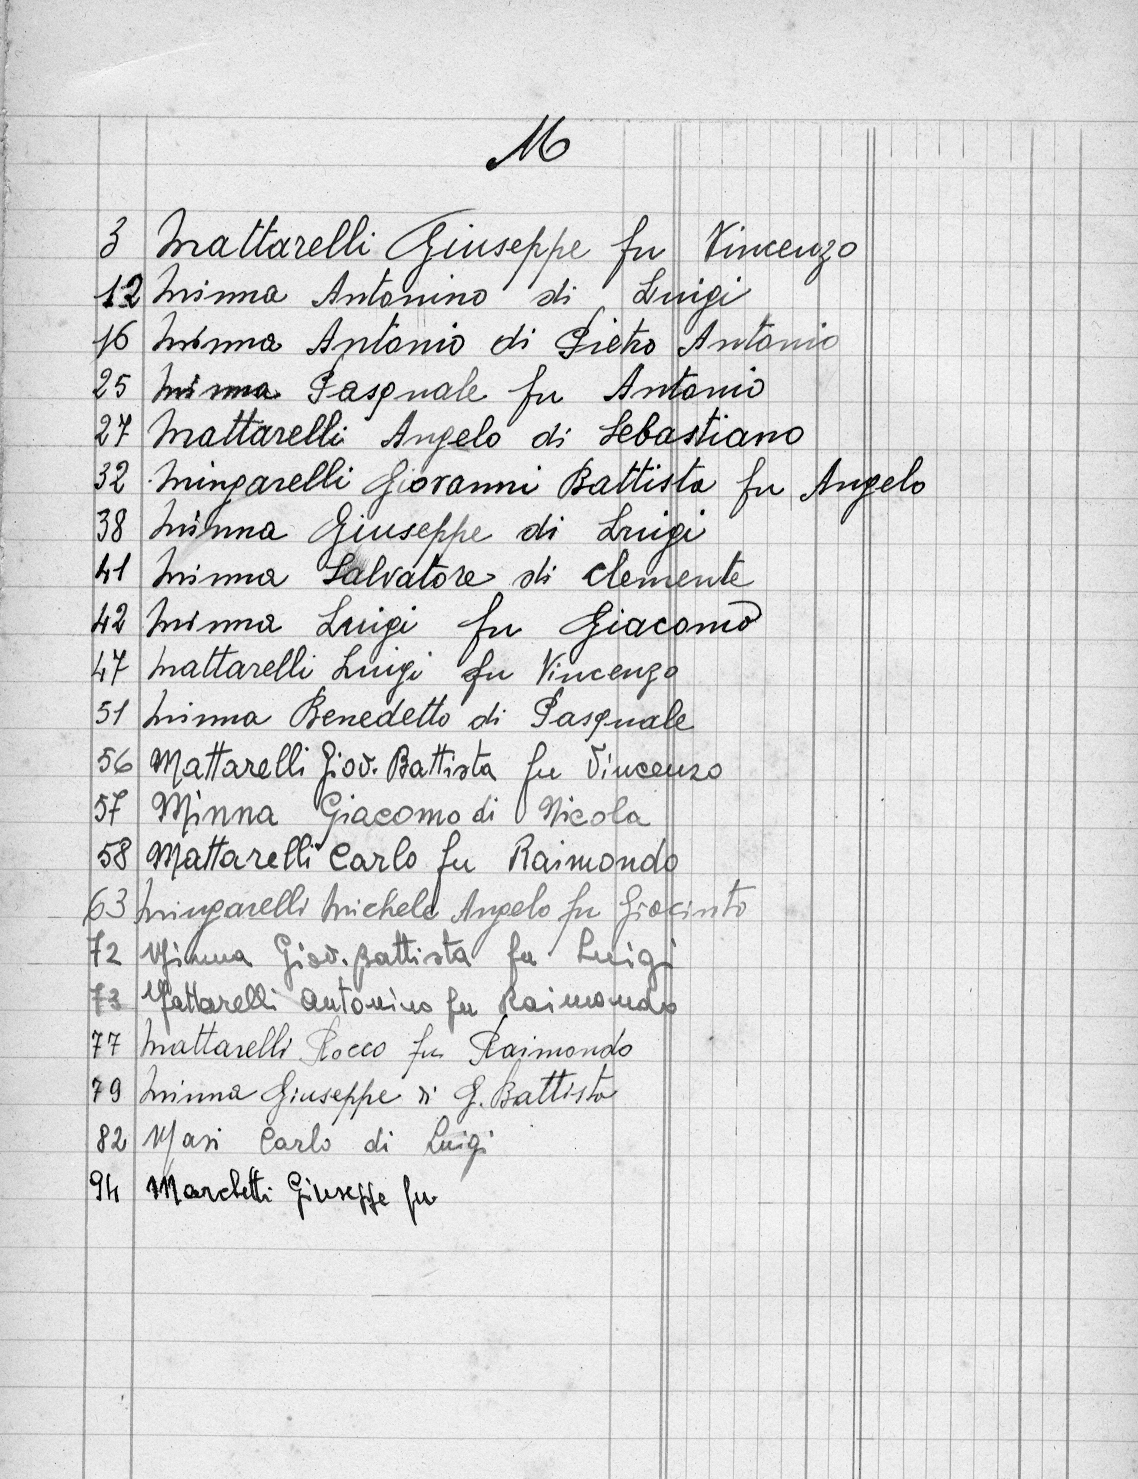 M
3 Mattarelli Giuseppe fu Vincenzo
12 Minna Antonino di Luigi
16 Minna Antonio di Pietro Antonio
25 Minna Pasquale fu Antonio
27 Mattarelli Angelo di Sebastiano
32 Mingarelli Giovanni Battista fu Angelo
38 Minna Giuseppe di Luigi
41 Minna Salvatore di Clemente
42 Minna Luigi fu Giacomo
47 Mattarelli Luigi fu Vincenzo
51 Minna Benedetto di Pasquale
56 Mattarelli Giov. Battista fu Vincenzo
57 Minna Giacomo di Nicola
58 Mattarelli Carlo fu Raimondo
63 Mingarelli Michele Angelo fu Giacinto
72 Minna Giov. Battista fu Luigi
73 Mattarelli Antonino fu Raimondo
77 Mattarelli Rocco fu Raimondo
79 Minna Giuseppe di G. Battista
82 Masi Carlo di Luigi
94 Marchetti Giuseppe fu